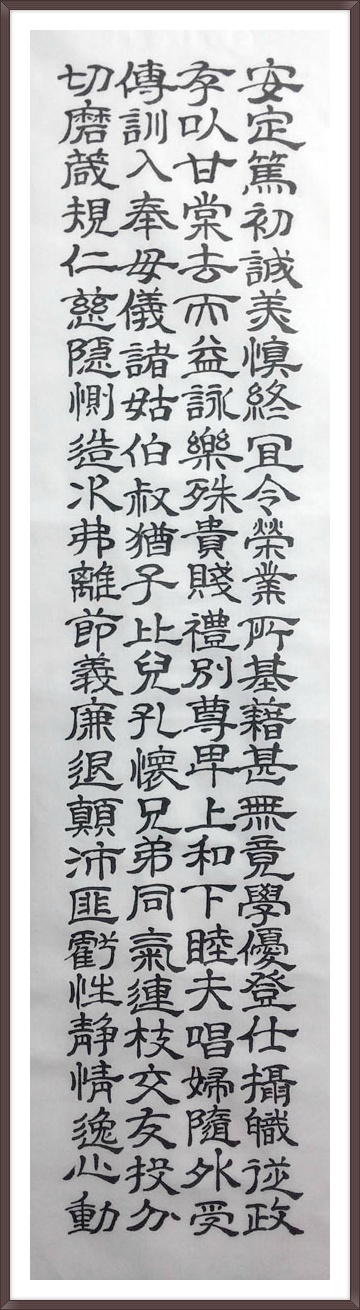 安定篤初誠美慎終冝令榮業所基藉甚無竟學優登仕攝職從政
存以甘棠去而益詠樂殊貴賤禮別尊卑上和下睦夫唱婦隨外受
傳訓入奉母儀諸姑伯叔猶子比兒孔懷兄弟同氣連枝交友投分
切磨葴規仁慈隱惻造次弗離節義廉退顛沛匪虧性静情逸心動